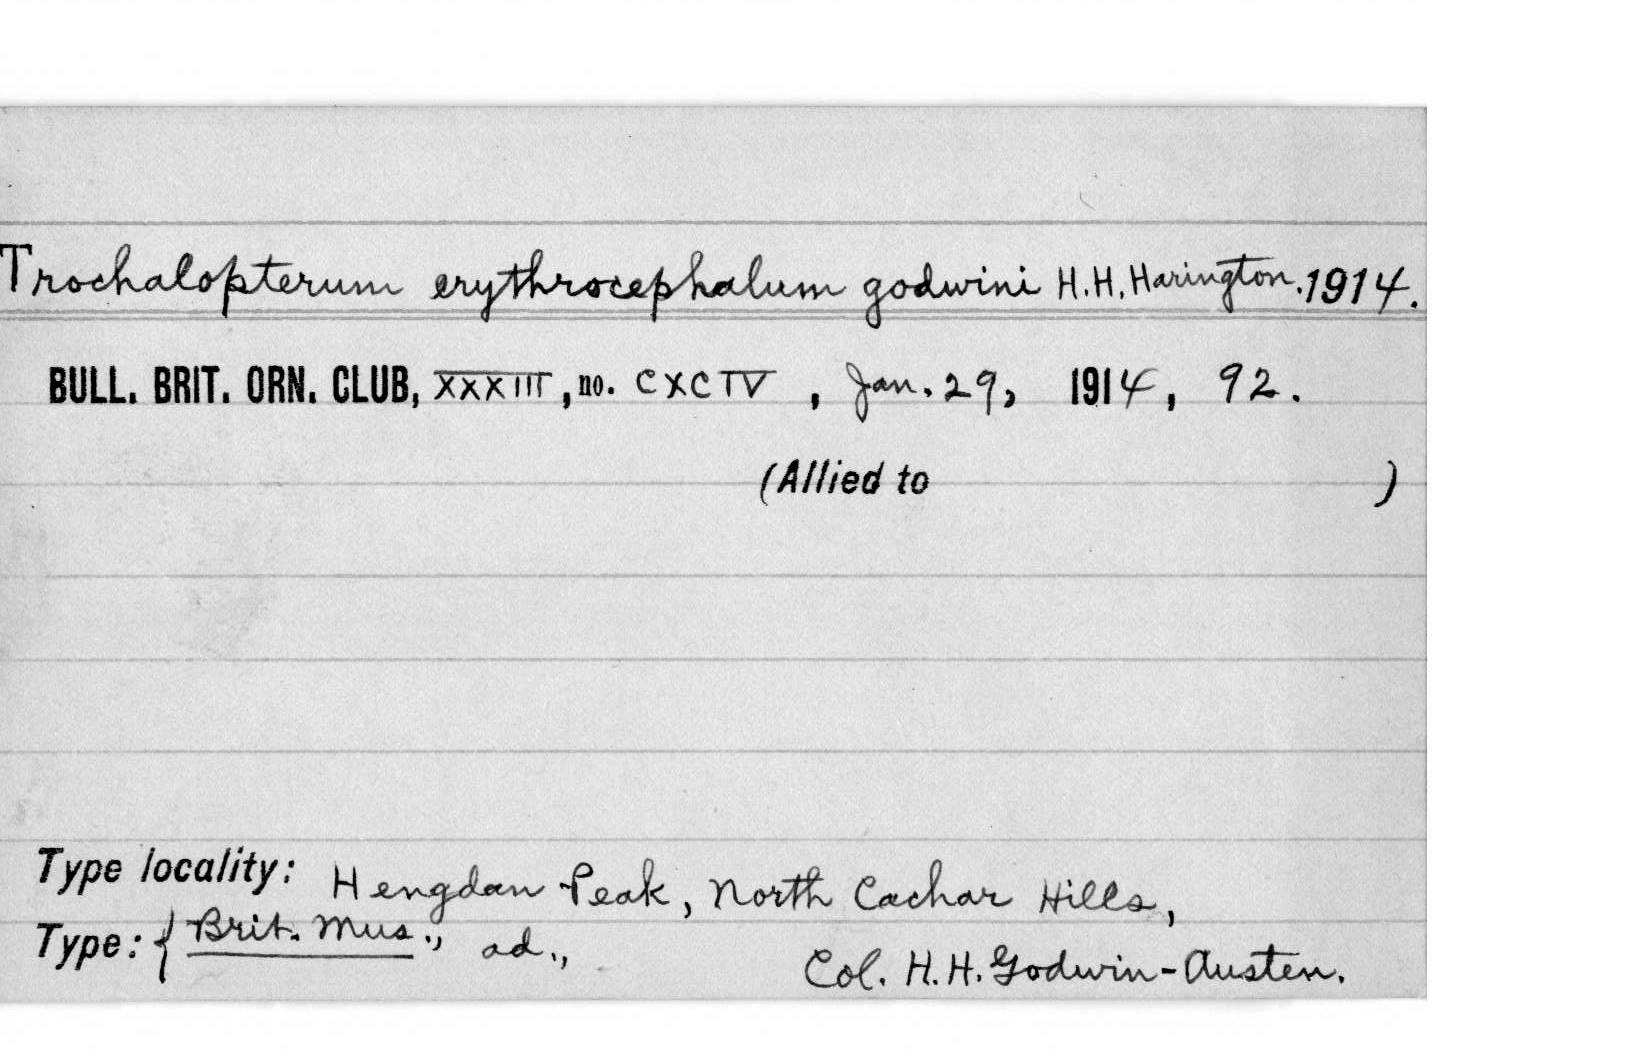 Trochalopterum erythrocephalum godwini H.H. Harington. 1914.
BULL. BRIT. ORN. CLUB, XXXIII, no. CXCIV, Jan. 29, 1914, 92.
(Allied to )
Type locality: Hengdan Peak, North Cachar Hills,
Type: { Brit. Mus., ad.,
Col. H.H. Godwin-Austen.